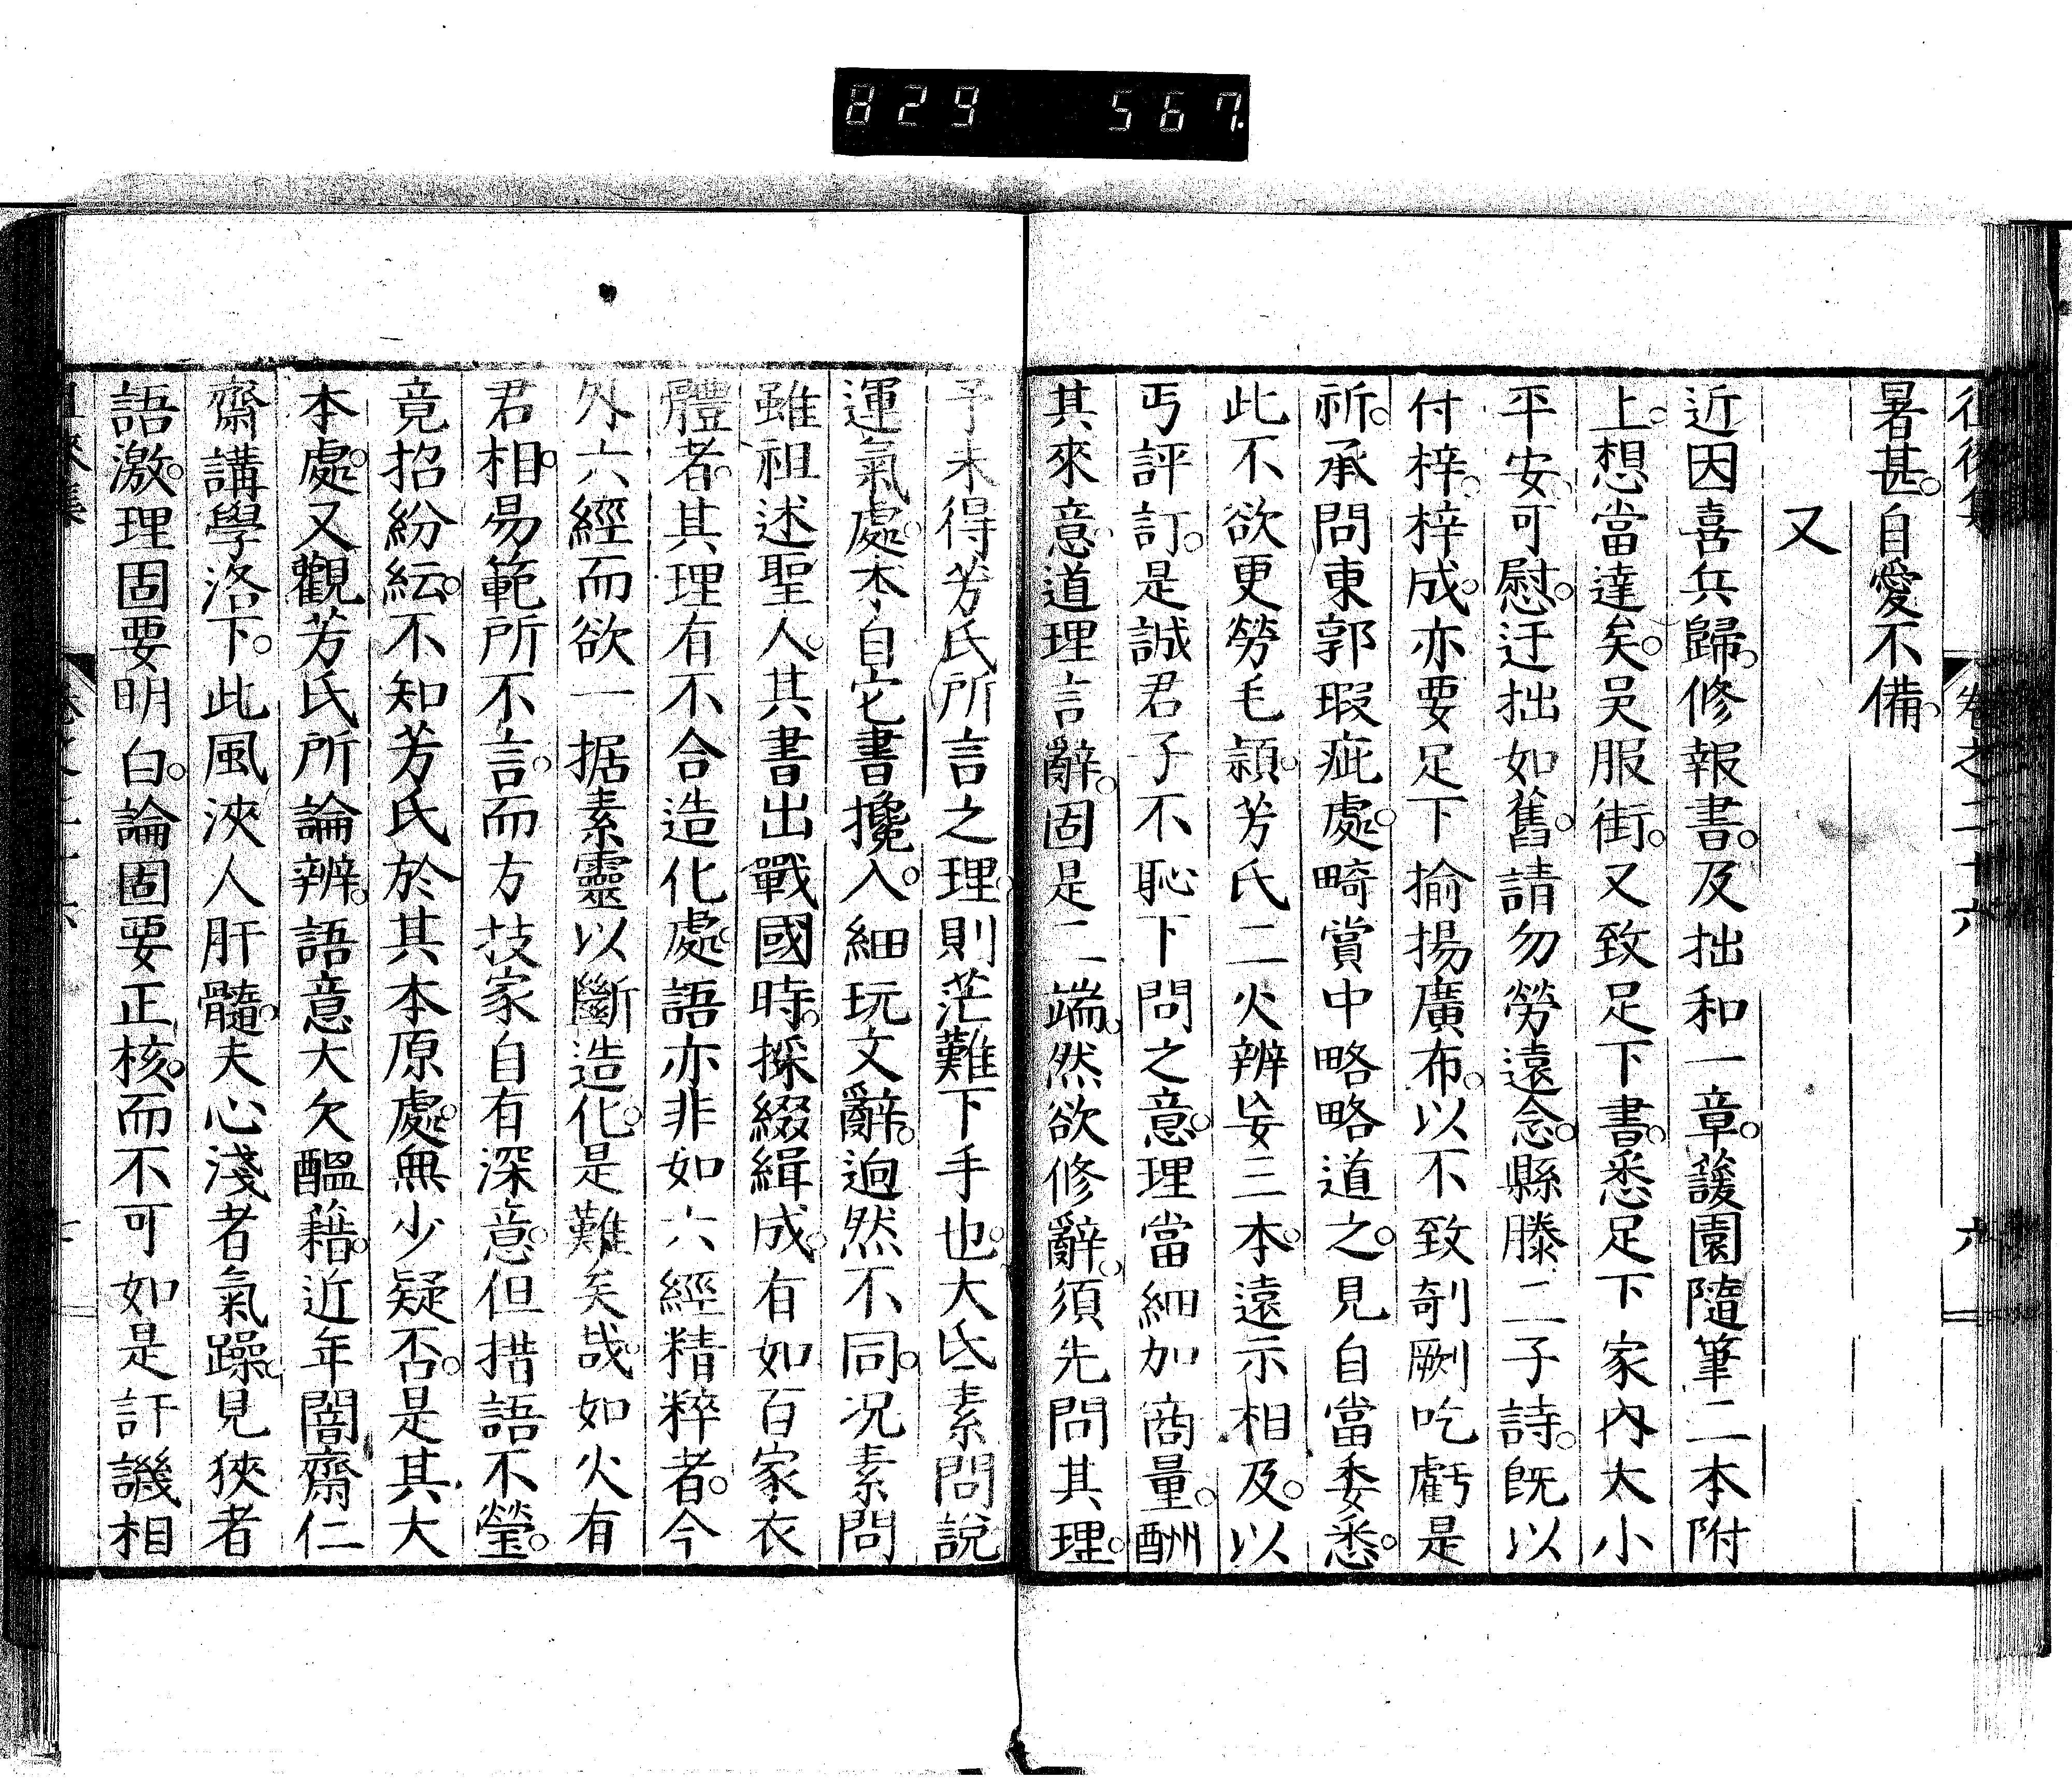 829 567
暑甚。自愛不備。
又
近因喜兵歸。修報書。及拙和一章。蘐園隨筆二本附
上。想當達矣。吳服街。又致足下書。悉足下家內大小
平安。可慰。迂拙如舊。請勿勞遠念。縣滕二子詩。既以
付梓。梓成。亦要足下揄揚廣布。以不致剞劂吃虧是
祈。承問東郭瑕疵處。畸賞中略略道之。見自當委悉。
此不欲更勞毛穎。芳氏二火辨妄三本。遠示相及。以
丐評訂。是誠君子不恥下問之意。理當細加商量。酬
其來意。道理言辭。固是二端。然欲修辭。須先問其理。
予未得芳氏所言之理。則茫難下手也。大氐素問說
運氣處。本自它書攙入。細玩文辭。逈然不同。况素問
雖祖述聖人。其書出戰國時。採綴緝成。有如百家衣
體者。其理有不合造化處。語亦非如六經精粹者。今
外六經而欲一据素靈以斷造化。是難矣哉。如火有
君相。易範所不言。而方技家自有深意。但措語不瑩。
竟招紛紜。不知芳氏於其本原處。無少疑否。是其大
本處。又觀芳氏所論辨。語意大欠醞藉。近年闇齋仁
齋講學洛下。此風浹人肝髓。夫心淺者氣躁。見狹者
語激。理固要明白。論固要正核。而不可如是訐譏相